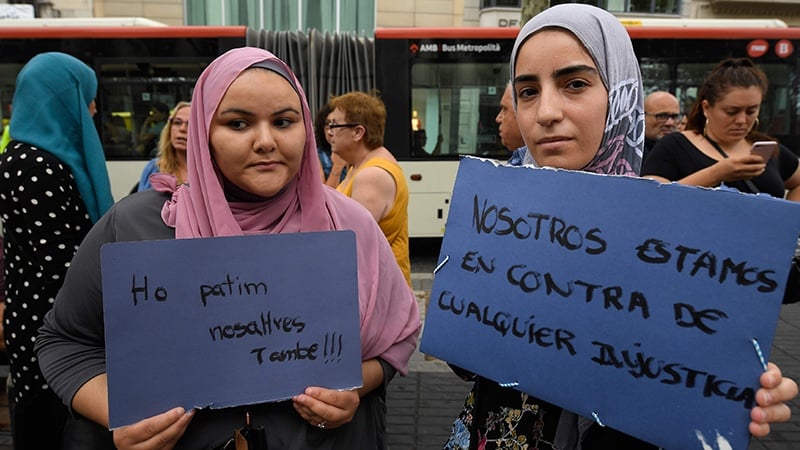 AMB Bus Metropolità
B
Ho patim
nosaltres
També !!!
NOSOTROS ESTAMOS
EN CONTRA DE
CUALQUIER INJUSTICIA